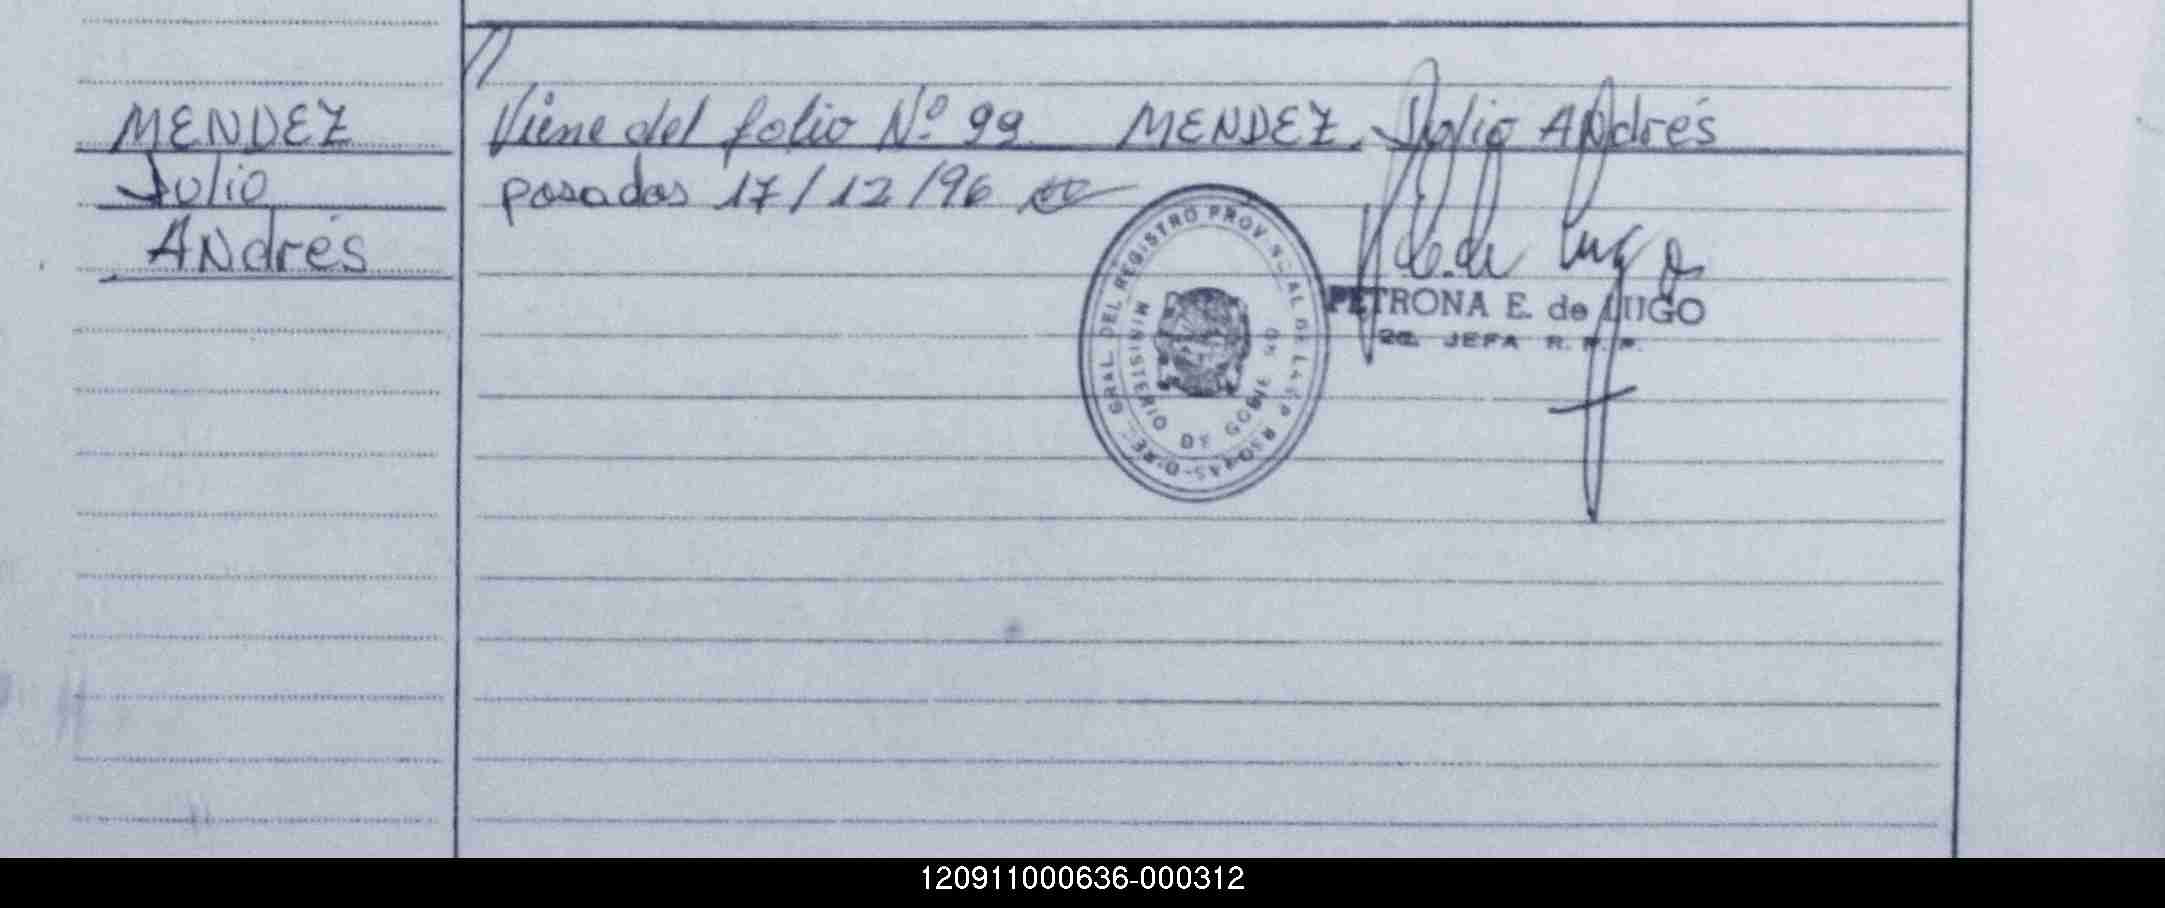 MENDEZ
Julio
Andrés
Viene del folio Nº 99 MENDEZ, Julio Andrés
posadas 17/12/96
DIREC. GRAL DEL REGISTRO PROVINCIAL DE LAS PERSONAS
MINISTERIO DE GOBIERNO
PETRONA E. de LUGO
JEFA R. P. P.
120911000636-000312